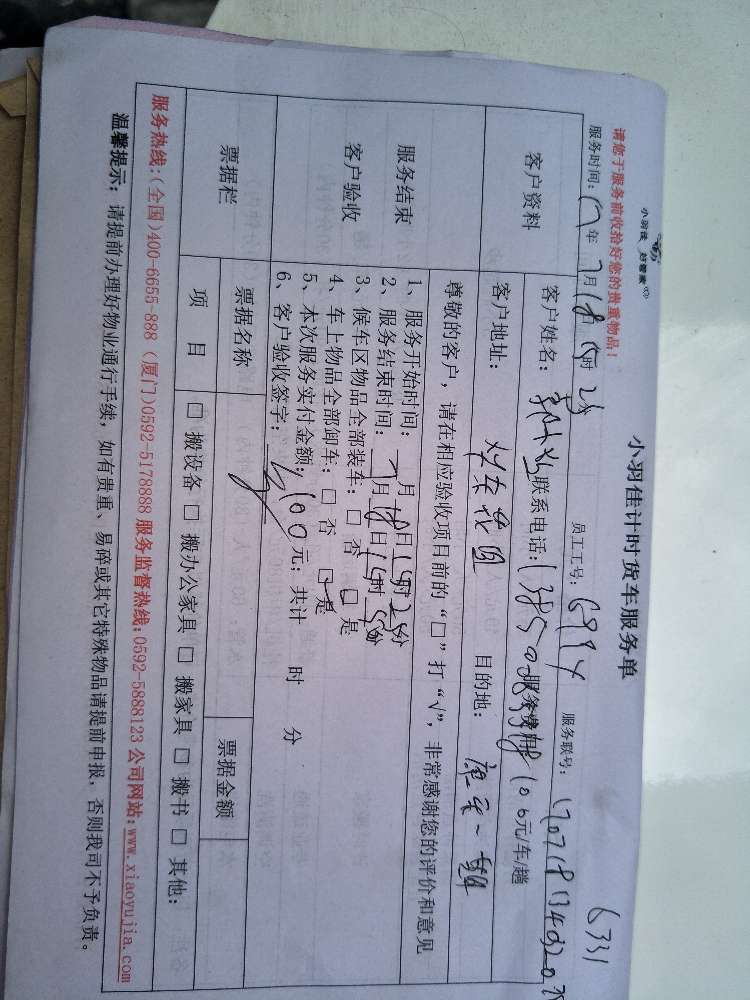 6331
小羽佳 好管家
小羽佳计时货车服务单
请您于服务前收拾好您的贵重物品！
服务时间：17年7月18日15时25分 员工工号：6994 服务联号：
客户资料
客户姓名： 联系电话： 服务费用 100元/车/趟
客户地址： 目的地：
尊敬的客户，请在相应验收项目前的“□”打“√”，非常感谢您的评价和意见
服务结束
客户验收
1、服务开始时间： 月 日15时25分
2、服务结束时间：7月18日15时55分
3、候车区物品全部装车：□ 否 □ 是
4、车上物品全部卸车：□ 否 □ 是
5、本次服务实付金额：100元；共计 时 分
6、客户验收签字：
票据栏
票据名称 票据金额
项 目 □ 搬设备 □ 搬办公家具 □ 搬家具 □ 搬书 □ 其他：
服务热线：(全国)400-6655-888 (厦门)0592-5178888 服务监督热线：0592-5888123 公司网站：www.xiaoyujia.com
温馨提示：请提前办理好物业通行手续，如有贵重、易碎或其它特殊物品请提前申报，否则我司不予负责。